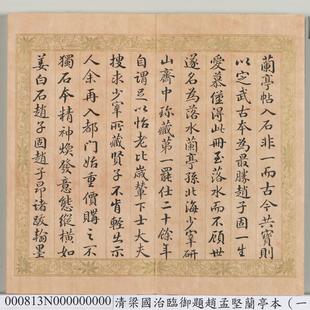 蘭亭帖入石非一而古今共寶則
以定武古本為最勝趙子固一生
愛慕僅得此冊至落水而不顧世
遂名為落水蘭亭孫北海少宰研
山齋中珍藏第一罷仕二十餘年
自謂足以怡老比歲輦下士大夫
搜求少宰所藏賢子不肯輕出示
人余再入都門始重價購之不
獨石本精神煥發意態縱橫如
姜白石趙子固趙子昂諸跋翰墨
000813N000000000 清梁國治臨御題趙孟堅蘭亭本（一